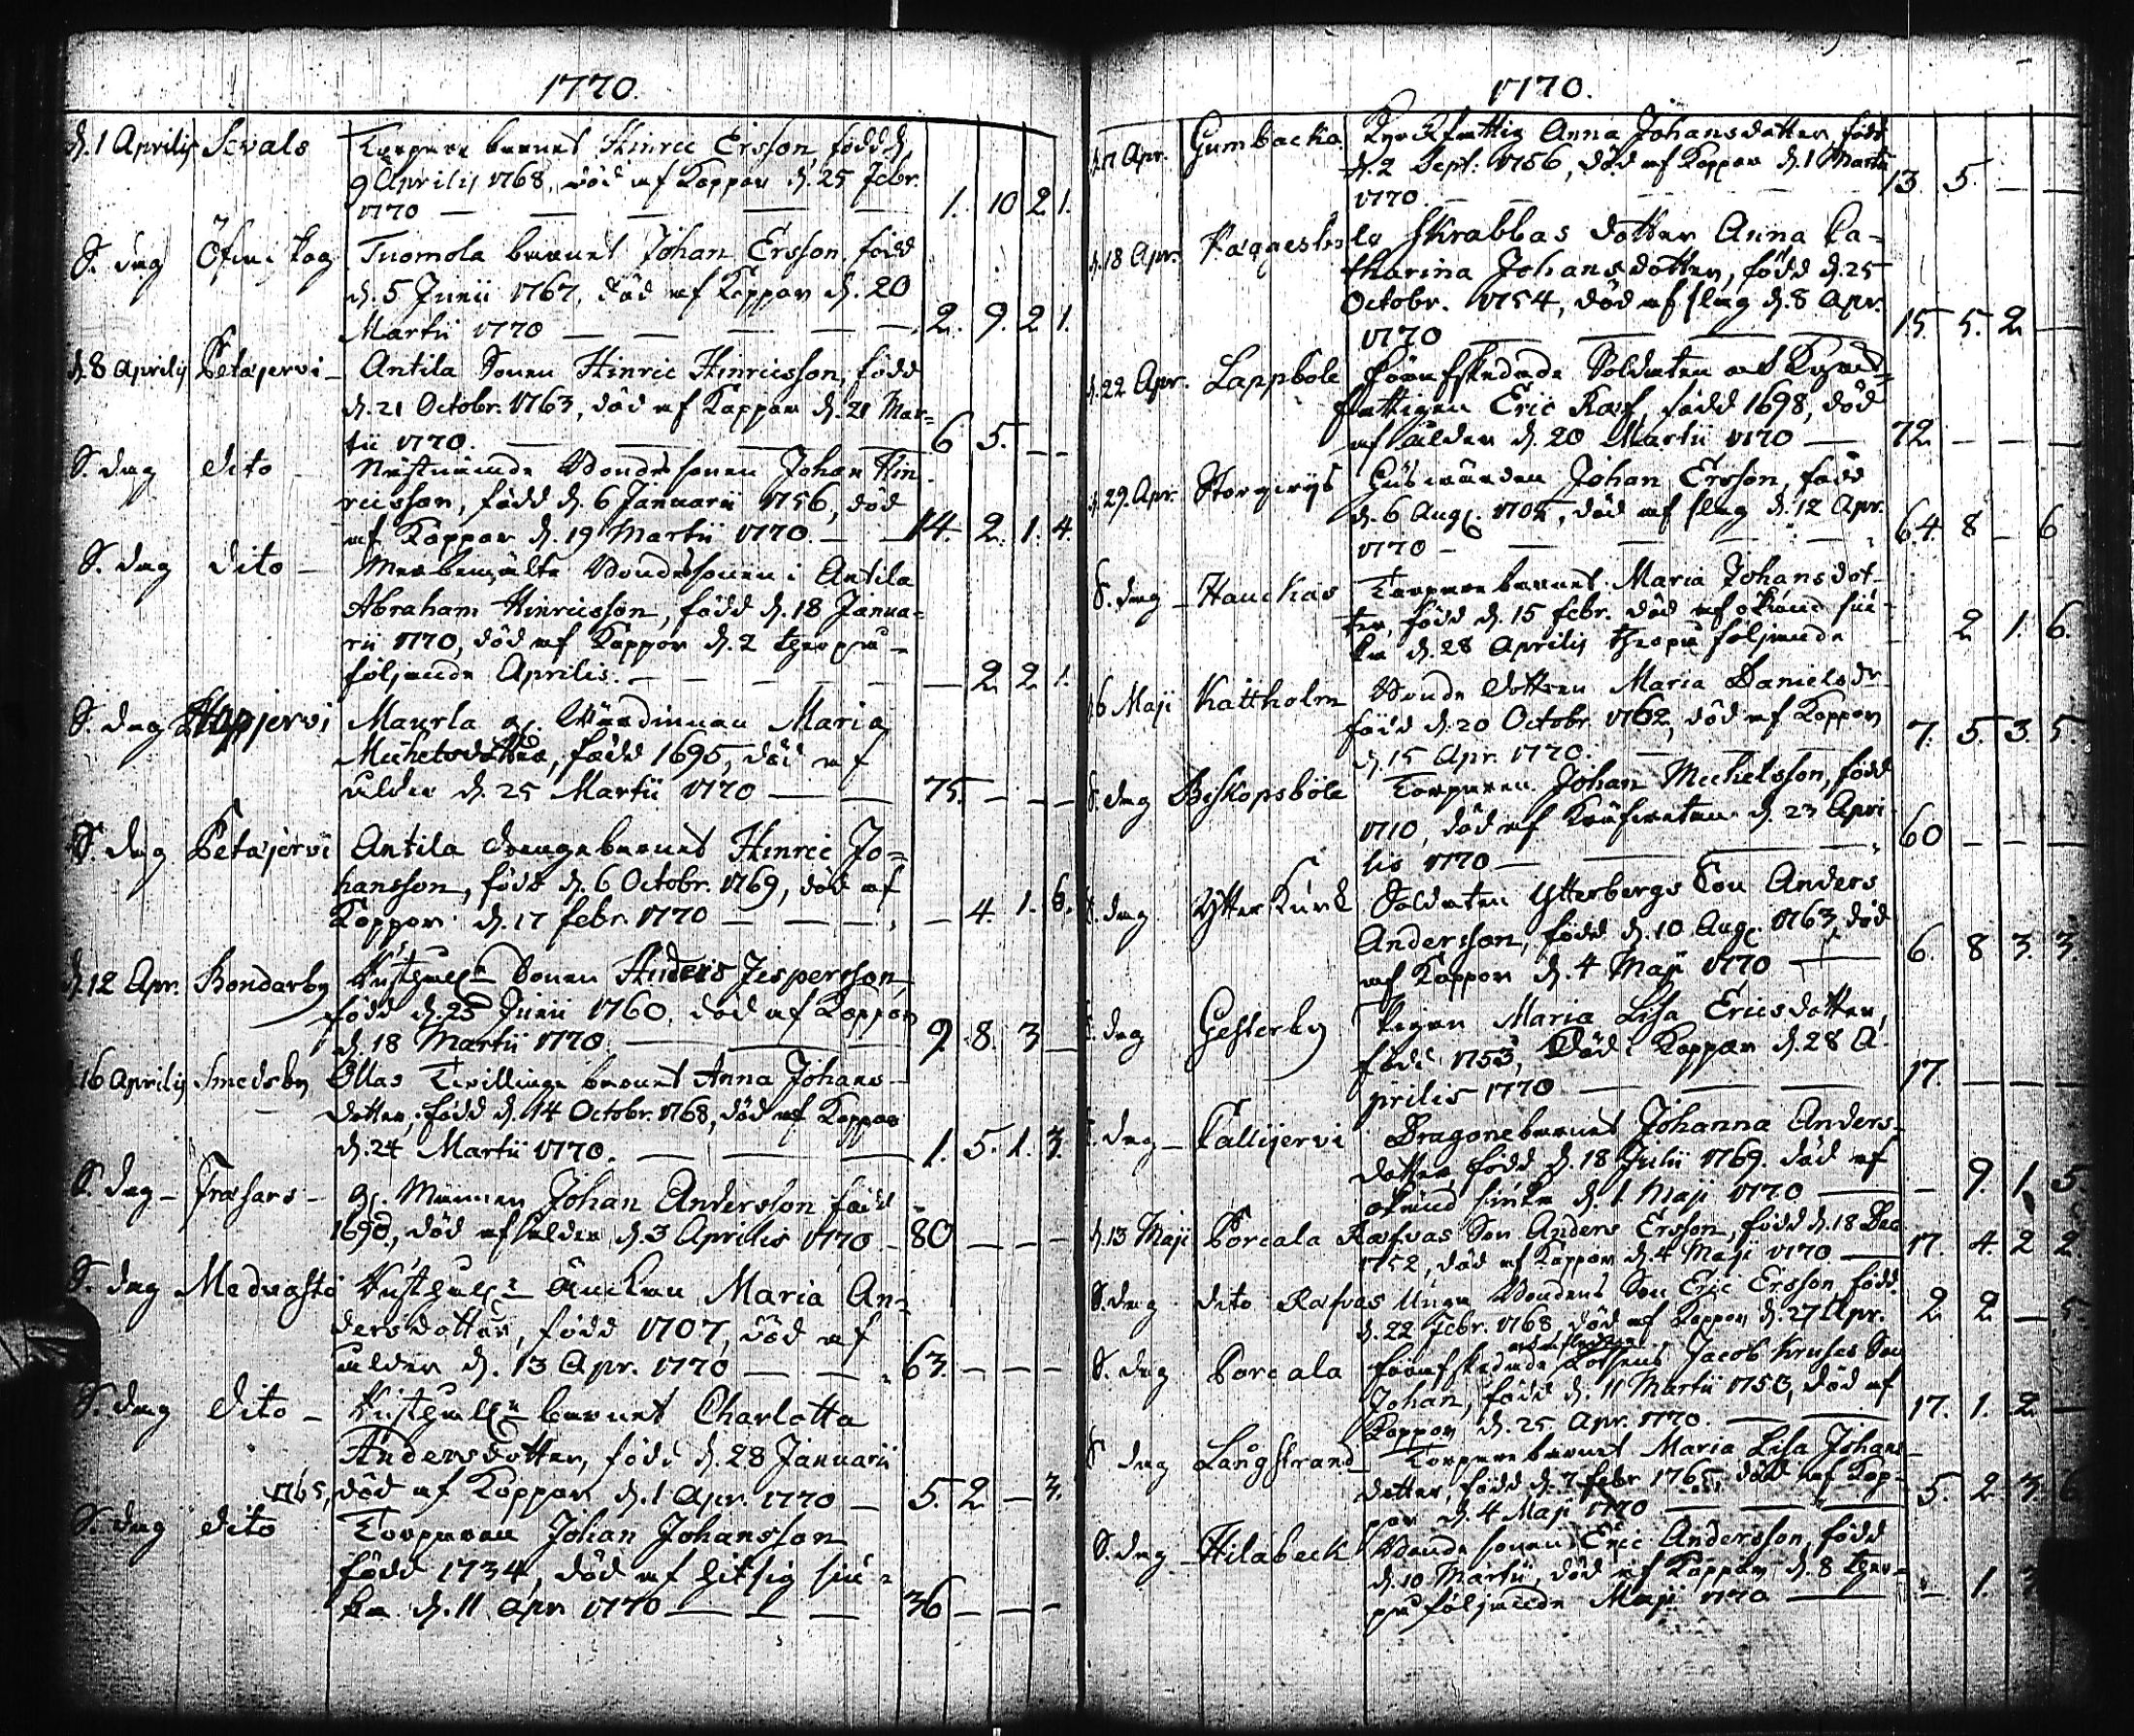 1770.
d. 1 Aprilis Sevals Torpare barnet Hinric Ersson, född d.
9 Aprilis 1768, död af Koppor d. 25 Febr.
1770 — — — — — 1. 10 2 1.
S. dag Öfver Tuomola barnet Johan Ersson född
d. 5 Junii 1767, död af Koppor d. 20
Martii 1770 — — — — — 2. 9. 2 1.
d. 8 Aprilis Petäjervi Antila Sonen Hinric Hinricsson, född
d. 21 Octobr. 1763, död af Koppor d. 21 Mar=
tii 1770. — — — — 6 5. — —
S. dag dito Nästnämde Bondesonen Johan Hin
ricsson, född d. 6 Januarii 1756, död
af Koppor d. 19 Martii 1770. — — 14. 2. 1. 4.
S. dag dito — Merbemälte Bondesonen i Antila
Abraham Hinricsson, född d. 18 Janua=
rii 1770, död af Koppor d. 2 therpå=
följande Aprilis. — — — — — — 2. 2. 1.
S. dag Haapjervi Maurla g. Wärdinnan Maria
Michelsdotter, född 1695, död af
ålder d. 25 Martii 1770 — — 75. — — —
S. dag Petäjervi Antila drängebarnet Hinric Jo=
hansson, född d. 6 Octobr. 1769, död af
Koppor d. 17 febr. 1770 — — — — 4. 1. 6.
d. 12 Apr. Bondarby Rusthåll: Sonen Anders Jespersson,
född d. 25 Junii 1760, död af Koppor
d. 18 Martii 1770. — — — 9. 8. 3 —
16 Aprilis Smedsby Ollas Tvillinge barnet Anna Johans
dotter, född d. 14 Octobr. 1768, död af Koppor
d. 24 Martii 1770. — — — 1. 5. 1. 3.
S. dag — Fräsars — g. Mannen Johan Andersson född
1690, död af ålder d. 3 Aprilis 1770 — 80 — — —
S. dag Medvasta Rusthåll: Änckan Maria An=
dersdotter, född 1707, död af
ålder d. 13 Apr. 1770 — — 63. — — —
S. dag dito — Rusthåll: barnet Charlotta
Andersdotter, född d. 28 Januarii
1765, död af Koppor d. 1 Apr. 1770 — 5. 2 — 3.
S. dag dito Torparen Johan Johansson
född 1734, död af hitsig siu=
ka d. 11 Apr 1770 — — — 36 — — —
1770.
d. 17 Apr. Gumbacka Kyrckfattig Anna Johansdotter, född
d. 2 Sept. 1756, död af Koppor d. 1 Martii
1770. — — 13. 5. — —
d. 18 Apr. Paggesbole Skrabbas dotter Anna Ca=
tharina Johansdotter, född d. 25
Octobr. 1754, död af slag d. 8 Apr.
1770 — — — — 15 5. 2. —
d. 22 Apr. Lappböle förafskedade Soldaten och Kyrck=
fattigen Eric Räf, född 1698, död
af ålder d. 20 Martii 1770 — 72 — — —
d. 29. Apr. Storgrys Husmannen Johan Ersson, född
d. 6 Aug. 1705, död af slag d. 12 Apr.
1770 — — — — — 64. 8 — 6
S. dag — Hauckas Torpare barnet Maria Johansdot
ter, född d. 15 febr. död af okänd siu=
ka d. 28 Aprilis therpå följande — 2 1. 6.
d. 6 Maji Kattholm Bonde dottren Maria Danielsdr
född d. 20 Octobr. 1762, död af Koppor
d. 15 Apr. 1770. — — 7. 5. 3. 5.
S. dag Biskopsböle Torparen Johan Michelsson, född
1710, död af Kräfwetan d. 23 Apri
lis 1770 — — — 60 — — —
S. dag Ytter Kurk Soldaten Ytterbergs Son Anders
Andersson, född d. 10 Aug. 1763, död
af Koppor d. 4 Maji 1770 — 6. 8 3. 3.
S. dag Gesterby Pigan Maria Lisa Ericsdotter,
född 1753, Död i Koppor d. 28 A
prilis 1770 — — — 17. — — —
S. dag — Tallijervi Dragonebarnet Johanna Anders=
dotter, född d. 18 Julii 1769. död af
okänd siuka d. 1 Maji 1770 — — 9. 1. 5.
d. 13 Maji Porcala Räfvas Son Anders Ersson, född d. 18 Dec
1752, död af Koppor d. 4 Maji 1770 — 17. 4. 2 2.
S. dag dito Räfvas Unga Bondens Son Eric Ersson, född
d. 22 Febr. 1768, död af Koppor d. 27 Apr. 2. 2 — 5.
S. dag Porcala förafskedade Jacob Kruses Son
Johan, född d. 11 Martii 1753, död af
Koppor d. 25 Apr. 1770. — — 17. 1. 2. —
S dag Långstrand Torpare barnet Maria Lisa Johans
dotter, född d. 7 febr 1765, död af Kop=
por d. 4 Maji 1770 — — — 5. 2 3. 6
S. dag — Hilabeck Bonde sonen Eric Andersson, född
d. 10 Martii, död af Koppor d. 8 ther=
på följande Maji 1770 — — 1. 3